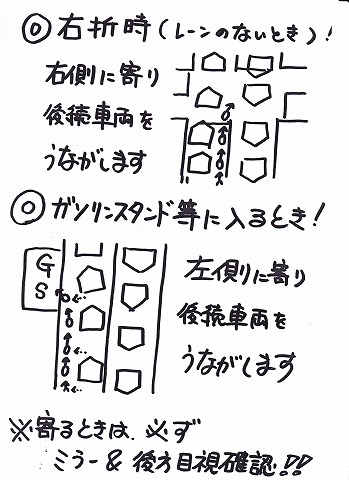 ◎右折時(レーンのないとき)!
右側に寄り
後続車両を
うながします
◎ガソリンスタンド等に入るとき!
GS
左側に寄り
後続車両を
うながします
※寄るときは、必ず
ミラー&後方目視確認!!